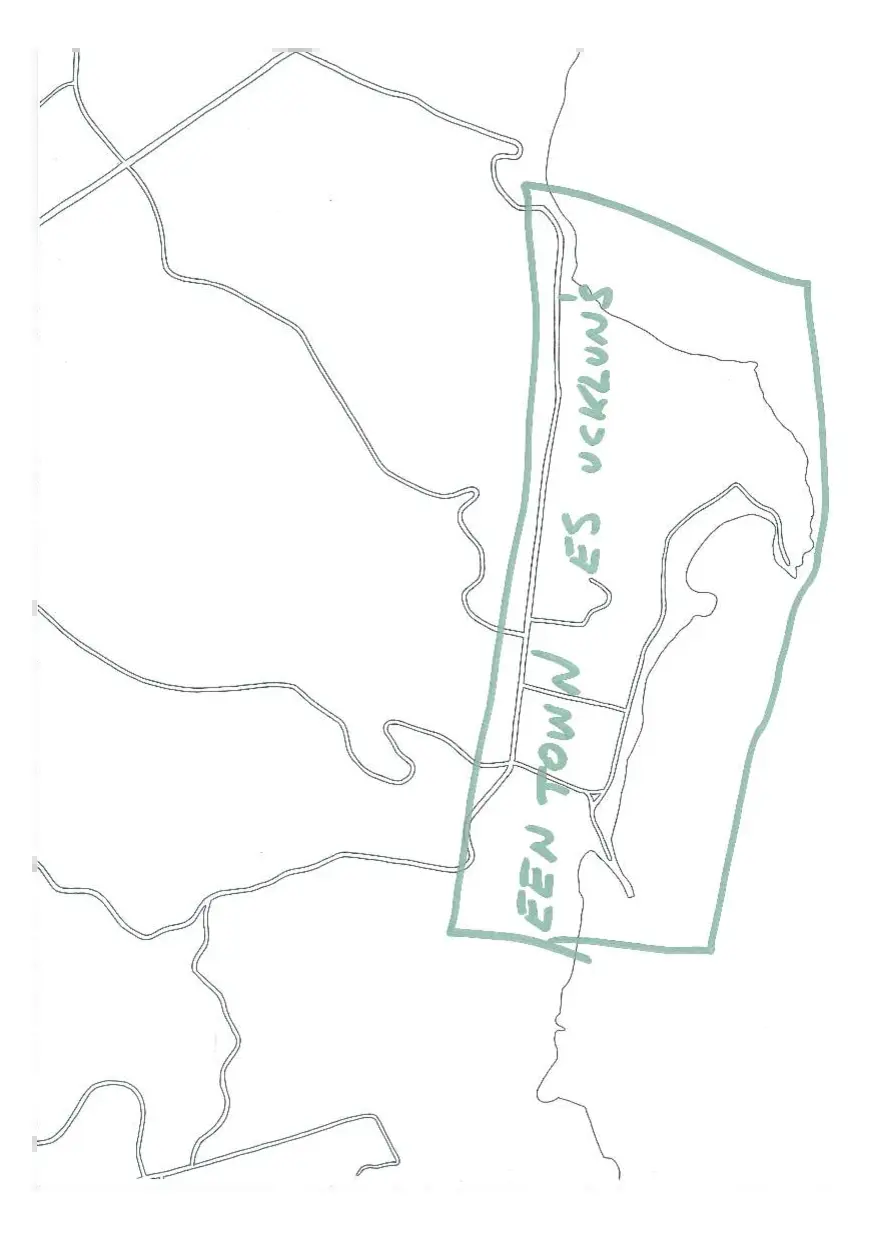 EEN TOWN ES UCKLUNS